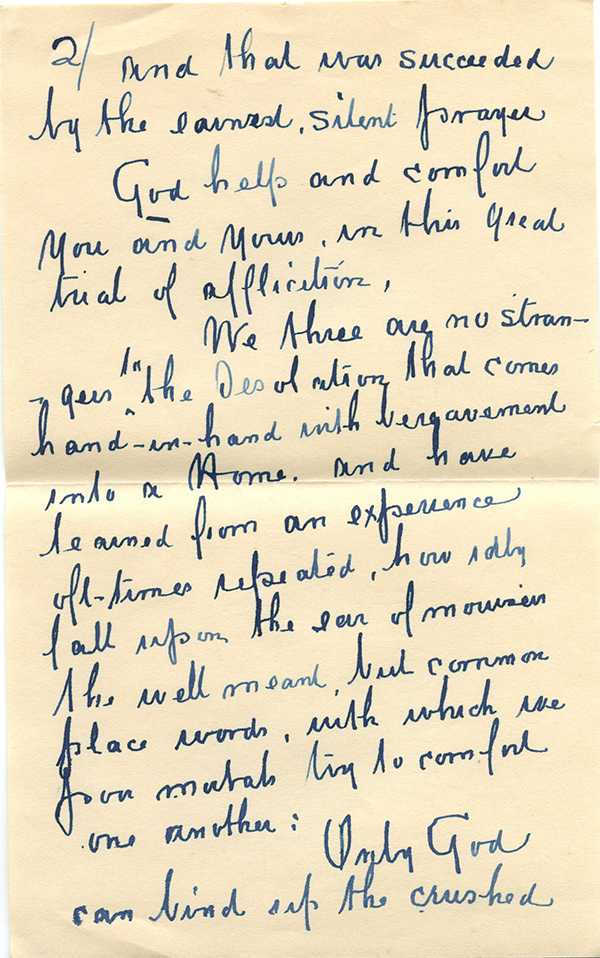 2/ and that was succeeded
by the earnest, silent prayer
God help and comfort
you and yours, in this great
trial of affliction,
We three are no stran-
-gers in the Desolation that comes
hand-in-hand with bereavement
into a Home. and have
learned from an experience
oft-times repeated, how idly
fall upon the ear of mourners
the well meant, but common
place words, with which we
poor mortals try to comfort
one another: Only God
can bind up the crushed